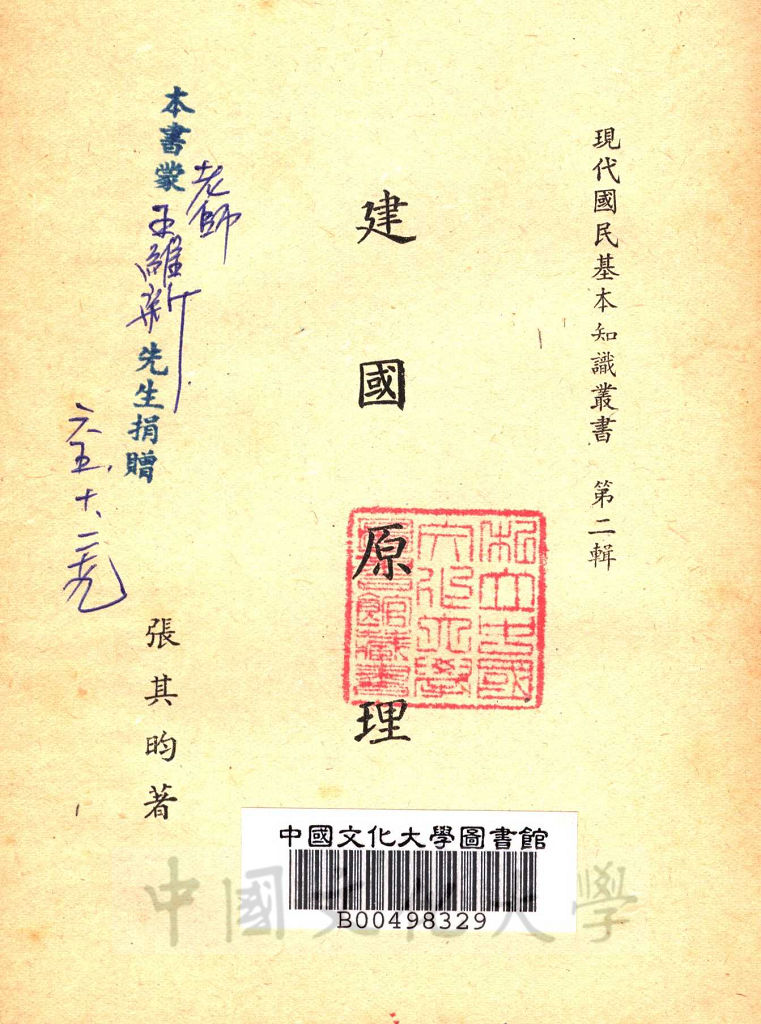 現代國民基本知識叢書 第二輯
建國原理
私立中國
文化大學
圖書館藏書
老師
本書蒙王維新先生捐贈
六五.十.二
張其昀著
中國文化大學圖書館
B00498329
中國文化大學